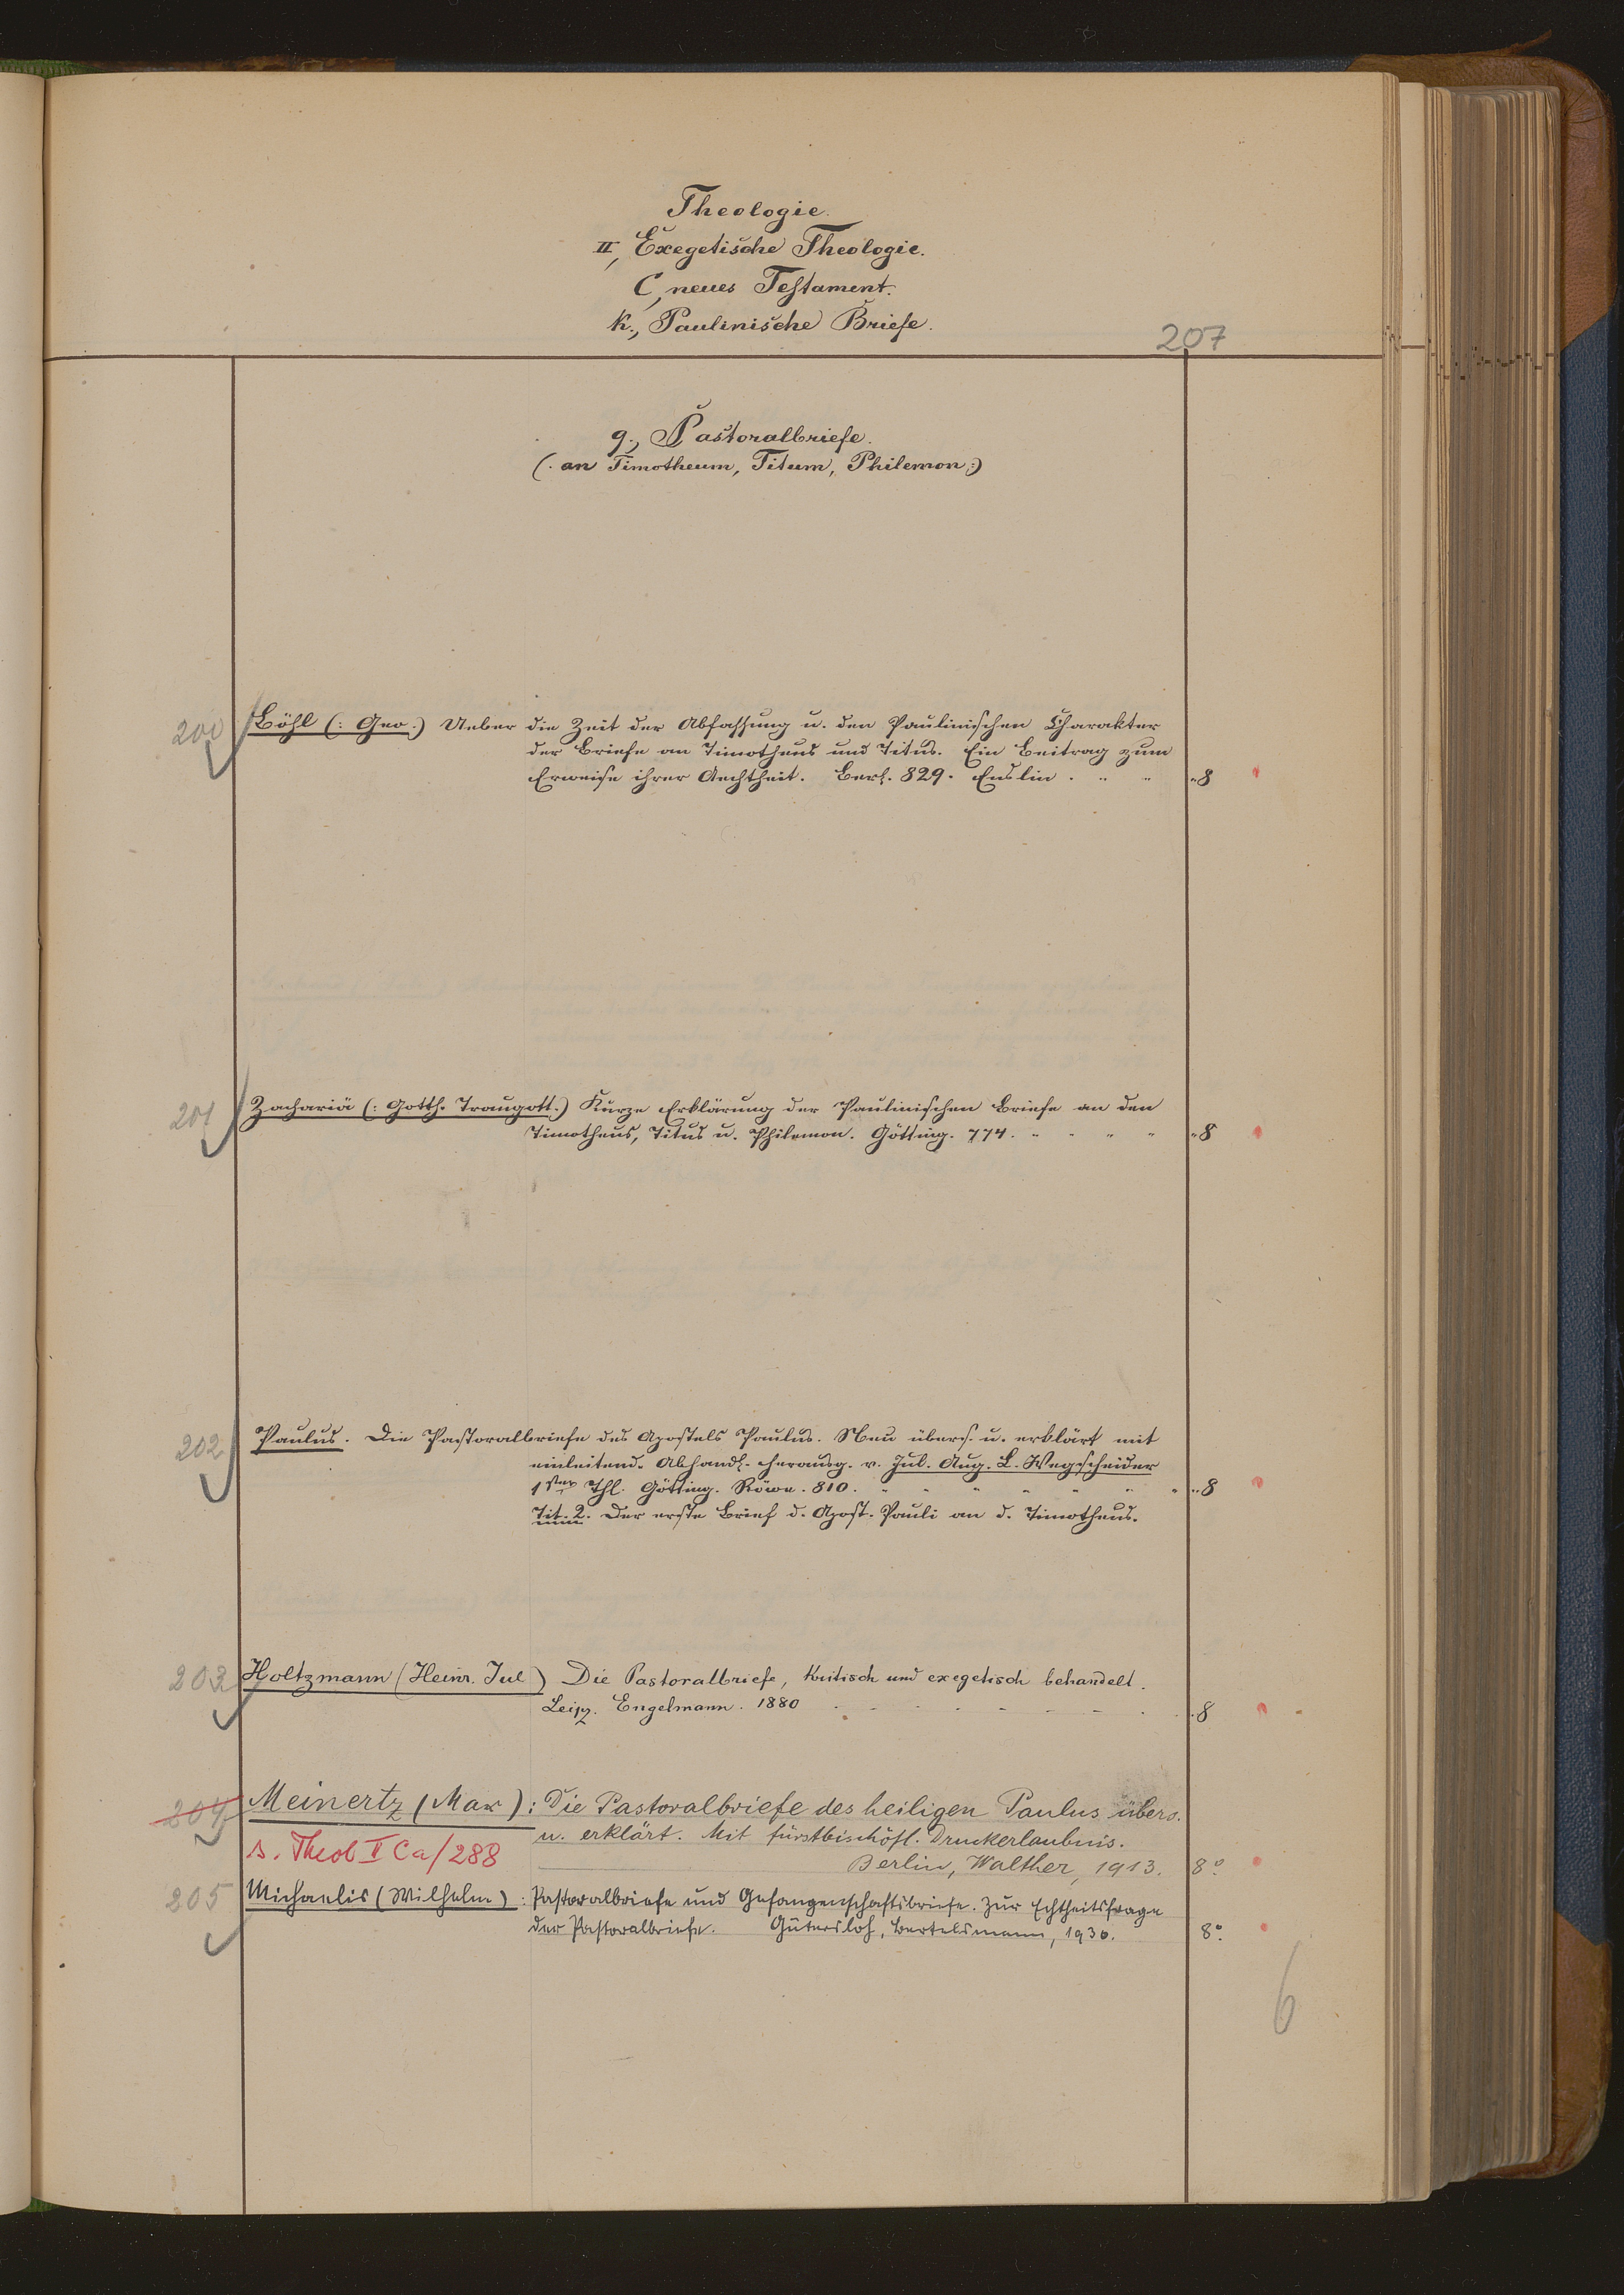 Theologie.
II, Exegetische Theologie.
C, neues Testament.
k., Paulinische Briefe.
207
g., Pastoralbriefe.
(: an Timotheum, Titum, Philemon :)
200 Böhl (: Geo :) Ueber die Zeit der Abfassung u. den Paulinischen Charakter
der Briefe an Timotheus und Titus. Ein Beitrag zum
Erweise ihrer Aechtheit. Berl. 829. Enslin . " " "8
201 Zachariä (: Gotth. Traugott :) Kurze Erklärung der Paulinischen Briefe an den
Timotheus, Titus u. Philemon. Götting. 774. " " " " "8
202 Paulus. Die Pastoralbriefe des Apostels Paulus. Neu übers. u. erklärt mit
einleitend. Abhandl. herausg. v. Jul. Aug. L. Wegscheider
1ster Thl. Götting. Röwer. 810. " " " " " " " "8
Tit. 2. Der erste Brief d. Apost. Pauli an d. Timotheus.
203 Holtzmann (Heinr. Jul) Die Pastoralbriefe, kritisch und exegetisch behandelt.
Leipz. Engelmann. 1880 - - - - - - - 8
204 Meinertz (Max): Die Pastoralbriefe des heiligen Paulus übers.
u. erklärt. Mit fürstbischöfl. Druckerlaubnis.
s. Theol II Ca/288
Berlin, Walther, 1913. 8°
205 Michaelis (Wilhelm): Pastoralbriefe und Gefangenschaftsbriefe. Zur Echtheitsfrage
der Pastoralbriefe. Gütersloh, Bertelsmann, 1930. 8°
6